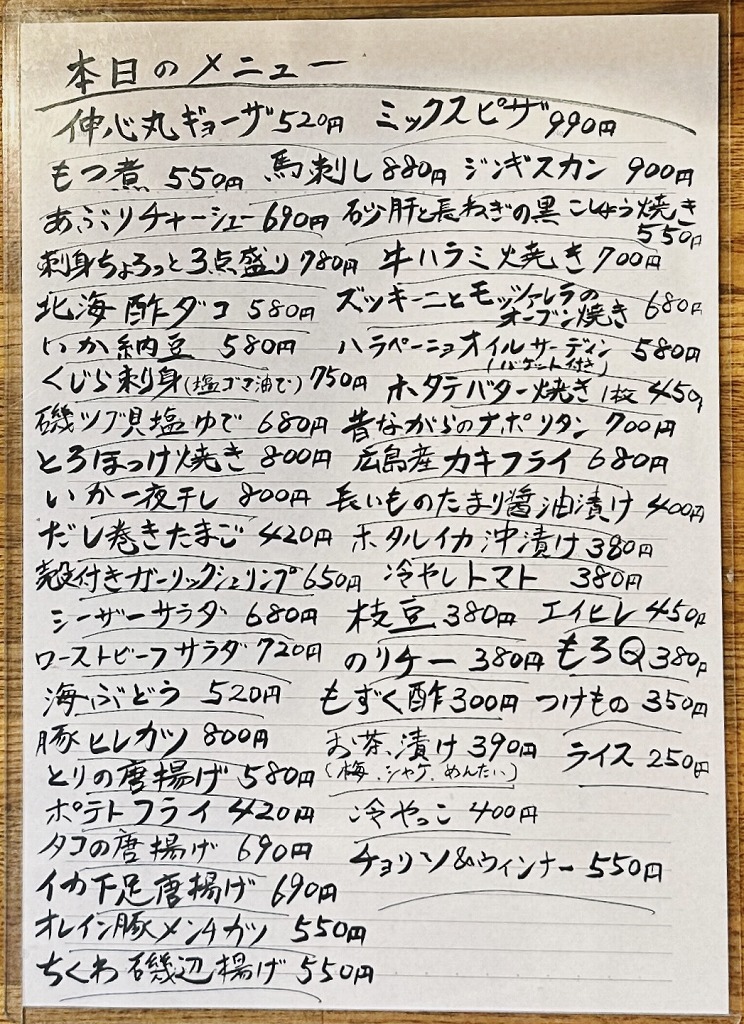 本日のメニュー
伸心丸ギョーザ520円 ミックスピザ990円
もつ煮 550円 馬刺し880円 ジンギスカン 900円
あぶりチャーシュー690円 砂肝と長ねぎの黒こしょう焼き
550円
刺身ちょろっと3点盛り780円 牛ハラミ焼き700円
北海酢ダコ 580円 ズッキーニとモッツァレラの
オーブン焼き 680円
いか納豆 580円 ハラペーニョオイルサーディン 580円
(バゲット付き)
くじら刺身(塩ゴマ油で)750円 ホタテバター焼き1枚 450円
磯ツブ貝塩ゆで 680円 昔ながらのナポリタン 700円
とろほっけ焼き 800円 広島産カキフライ 680円
いか一夜干し 800円 長いものたまり醤油漬け 400円
だし巻きたまご 420円 ホタルイカ沖漬け380円
殻付きガーリックシュリンプ650円 冷やしトマト 380円
シーザーサラダ 680円 枝豆380円 エイヒレ450円
ローストビーフサラダ720円 のりチー 380円 もろQ380円
海ぶどう 520円 もずく酢300円 つけもの 350円
豚ヒレカツ 800円 お茶漬け390円 ライス 250円
(梅、シャケ、めんたい)
とりの唐揚げ 580円
ポテトフライ 420円 冷やっこ 400円
タコの唐揚げ 690円 チョリソ&ウィンナー 550円
イカ下足唐揚げ 690円
オレイン豚メンチカツ 550円
ちくわ磯辺揚げ 550円